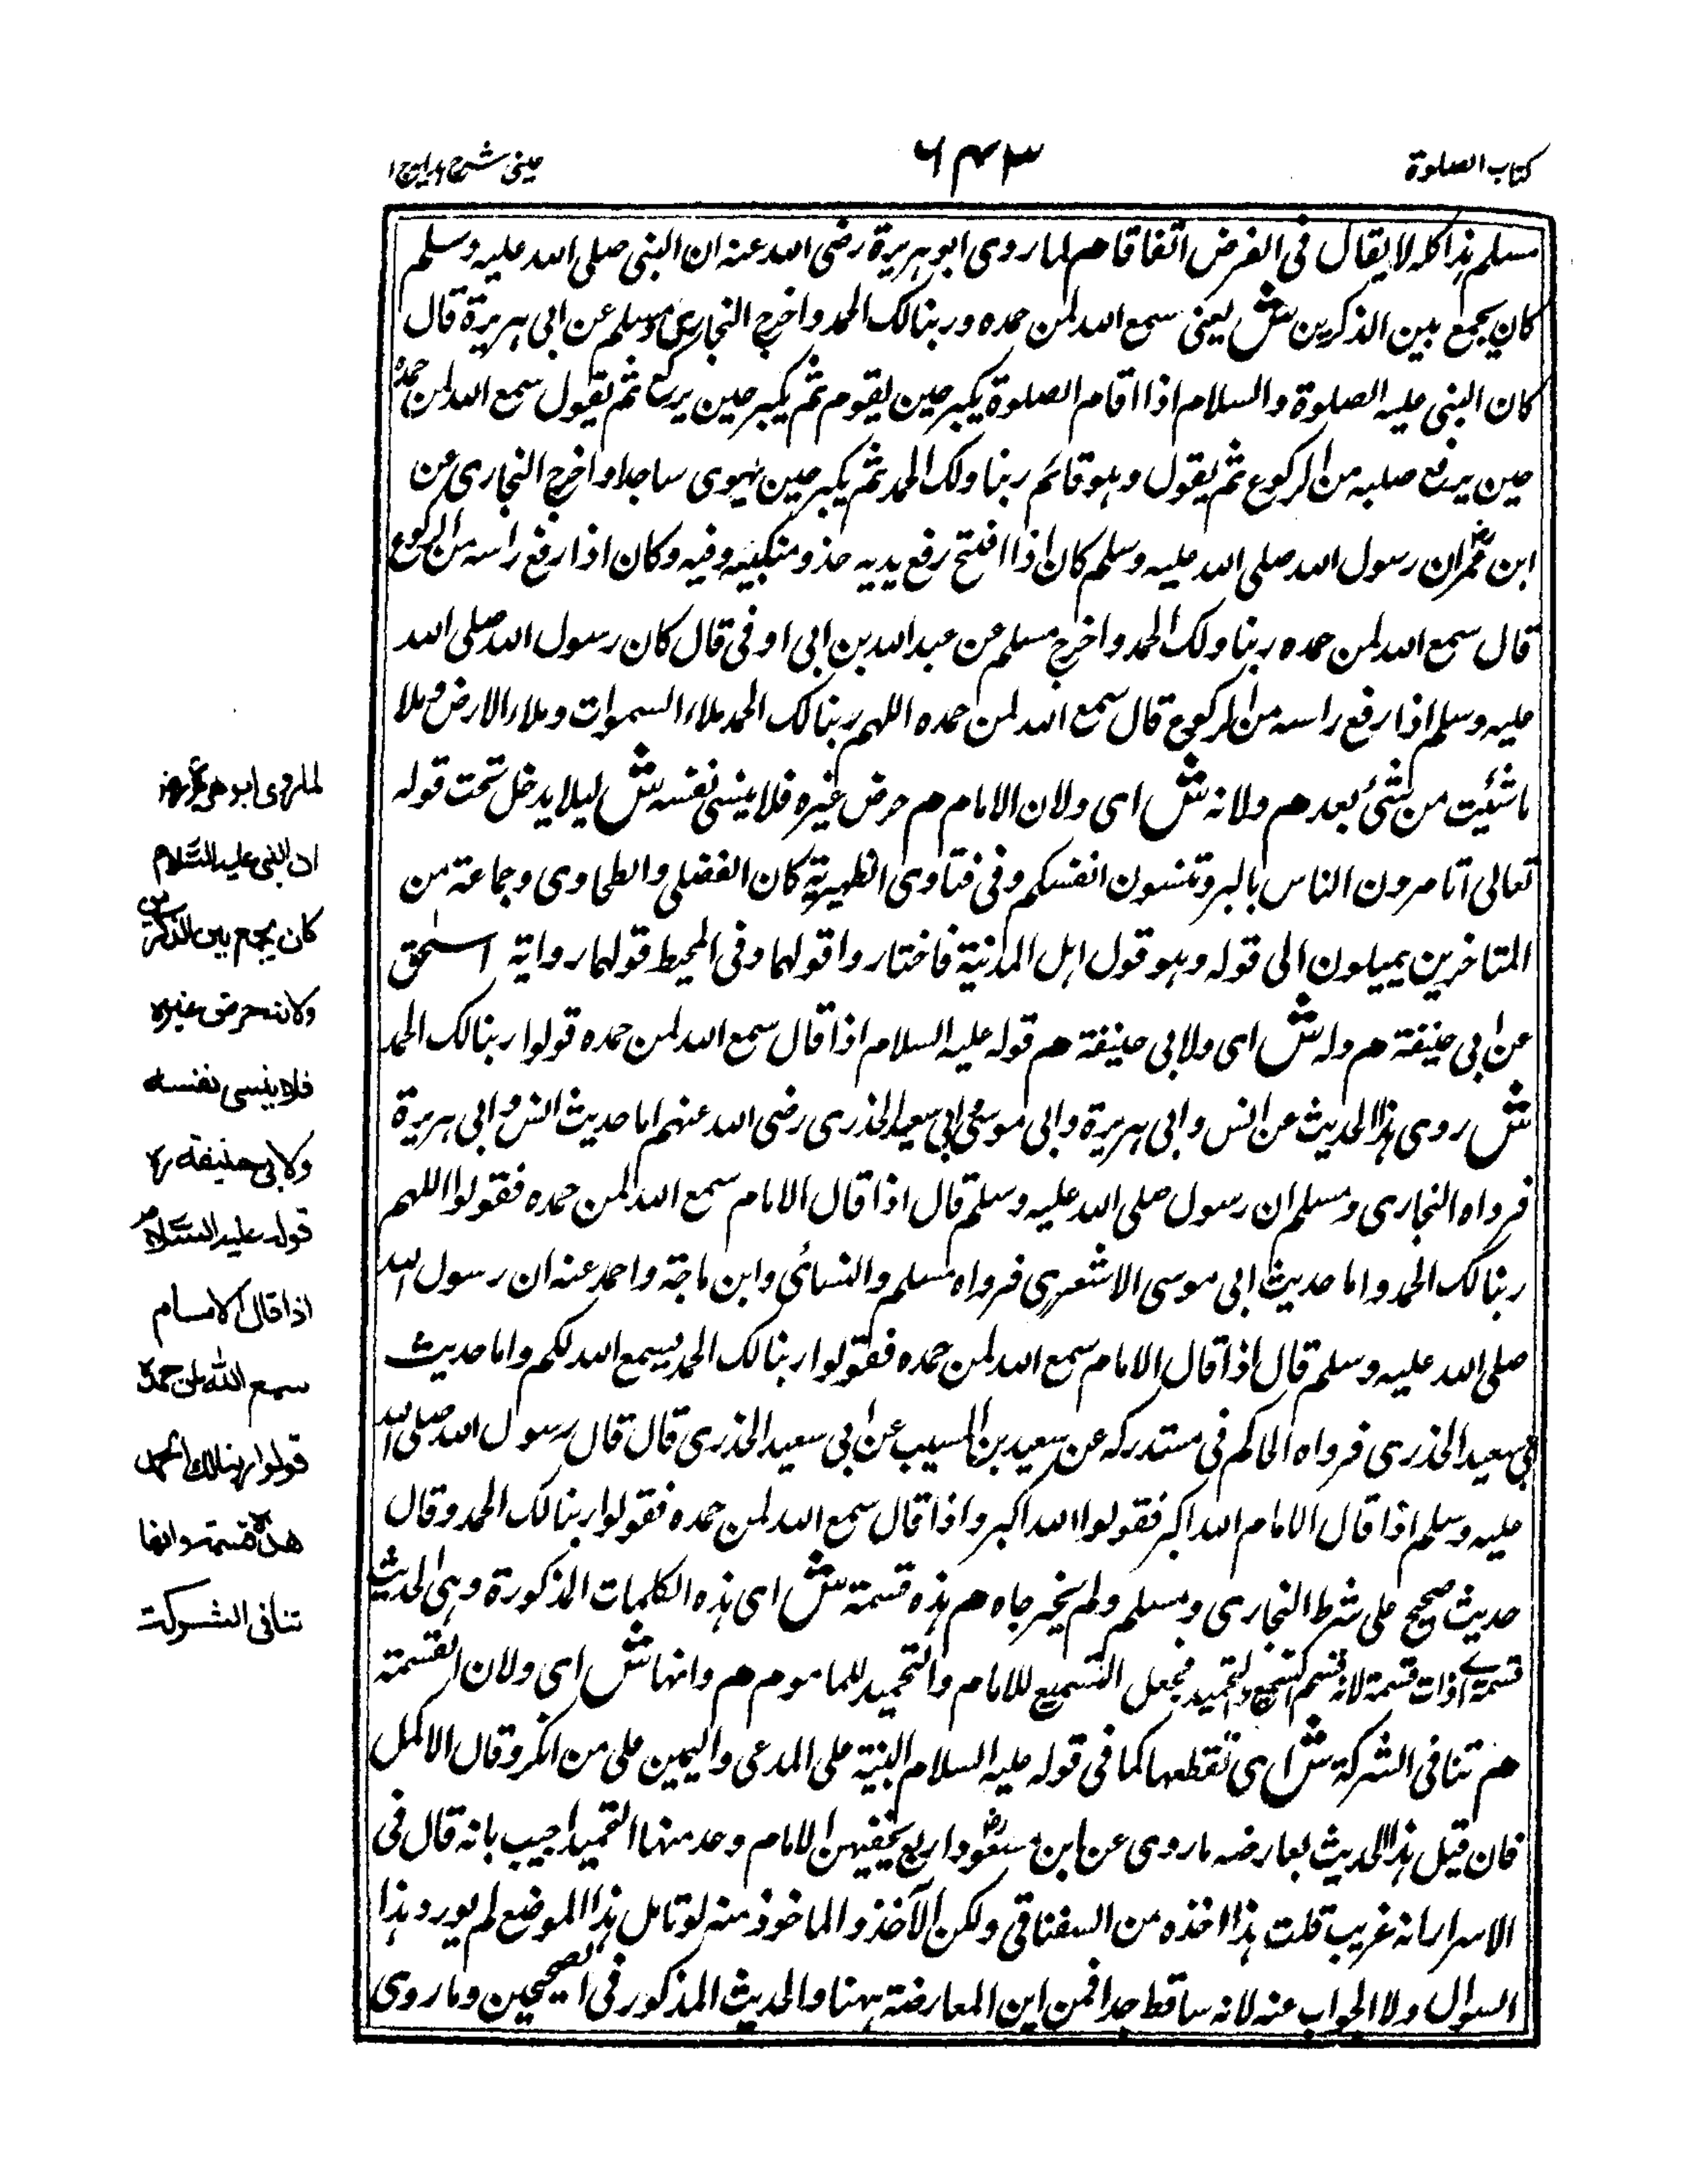 كتاب الصلوة
٦٤٣
عينى شرح هدايه ج ا
مسلم هذا كله لا يقال فى الفرض اتفاقا هم لما روى ابو هريرة رضى الله عنه ان النبى صلى الله عليه وسلم
كان يجمع بين الذكرين ش يعنى سمع الله لمن حمده وربنا لك الحمد واخرج البخارى ومسلم عن ابى هريرة قال
كان النبى عليه الصلوة والسلام اذا اقام الصلوة يكبر حين يقوم ثم يكبر حين يركع ثم يقول سمع الله لمن حمده
حين يرفع صلبه من الركوع ثم يقول وهو قائم ربنا ولك الحمد ثم يكبر حين يهوى ساجدا واخرج البخارى عن
ابن عمر ان رسول الله صلى الله عليه وسلم كان اذا افتتح رفع يديه حذو منكبيه وفيه وكان اذا رفع راسه من الركوع
قال سمع الله لمن حمده ربنا ولك الحمد واخرج مسلم عن عبد الله بن ابى اوفى قال كان رسول الله صلى الله
عليه وسلم اذا رفع راسه من الركوع قال سمع الله لمن حمده اللهم ربنا لك الحمد ملاء السموات وملاء الارض وملا
ما شئت من شئ بعد هم ولانه ش اى ولان الامام هم حرض غيره فلا ينسى نفسه ش ليلا يدخل تحت قوله
تعالى اتامرون الناس بالبر وتنسون انفسكم وفى فتاوى الظهيرية كان الفضلى والطحاوى وجماعة من
المتاخرين يميلون الى قوله وهو قول اهل المدنية فاختاروا قولهما وفى المحيط قولهما رواية اسحق
عن ابى حنيفة هم وله ش اى ولابى حنيفة هم قوله عليه السلام اذا قال سمع الله لمن حمده قولوا ربنا لك الحمد
ش روى هذا الحديث عن انس وابى هريرة وابى موسى وابى سعيد الخذرى رضى الله عنهم اما حديث انس وابى هريرة
فرواه البخارى ومسلم ان رسول صلى الله عليه وسلم قال اذا قال الامام سمع الله لمن حمده فقولوا اللهم
ربنا لك الحمد واما حديث ابى موسى الاشعرى فرواه مسلم والنسائى وابن ماجة واحمد عنه ان رسول الله
صلى الله عليه وسلم قال اذا قال الامام سمع الله لمن حمده فقولوا ربنا لك الحمد يسمع الله لكم واما حديث
ابى سعيد الخذرى فرواه الحاكم فى مستدركه عن سعيد بن المسيب عن ابى سعيد الخذرى قال قال رسول الله صلى الله
عليه وسلم اذا قال الامام الله اكبر فقولوا الله اكبر واذا قال سمع الله لمن حمده فقولوا ربنا لك الحمد وقال
حديث صحيح على شرط البخارى ومسلم ولم يخرجاه هم هذه قسمة ش اى هذه الكلمات المذكورة وهى الحديث
قسمة اى ذات قسمة لانه قسم التسميع والتحميد فجعل التسميع للامام والتحميد للماموم هم وانها ش اى ولان القسمة
هم تنافى الشركة ش اى تقطعها كما فى قوله عليه السلام البنية على المدعى واليمين على من انكر وقال الاكمل
فان قيل هذا الحديث يعارضه ما روى عن ابن مسعود اربع يخفيهن الامام وعد منها التحميد اجيب بانه قال فى
الاسرار انه غريب قلت هذا اخذه من السغناقى ولكن الآخذ والماخوذ منه لو تامل هذا الموضع لم يورد هذا
السوال ولا الجواب عنه لانه ساقط جدا فمن اين المعارضة ههنا والحديث المذكور فى الصحيحين وما روى
لما روى ابو هريرة
ان النبى عليه السلام
كان يجمع بين الذكرين
ولانه حرض غيره
فلا ينسى نفسه
ولابى حنيفة ره
قوله عليه السلام
اذا قال الامام
سمع الله لمن حمده
قولوا ربنا لك الحمد
هذه قسمة وانها
تنافى الشركة